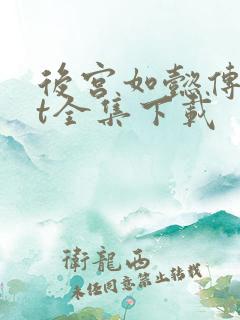 後宮如懿傳
t全集下載
衛龍西
未任同意禁止转载